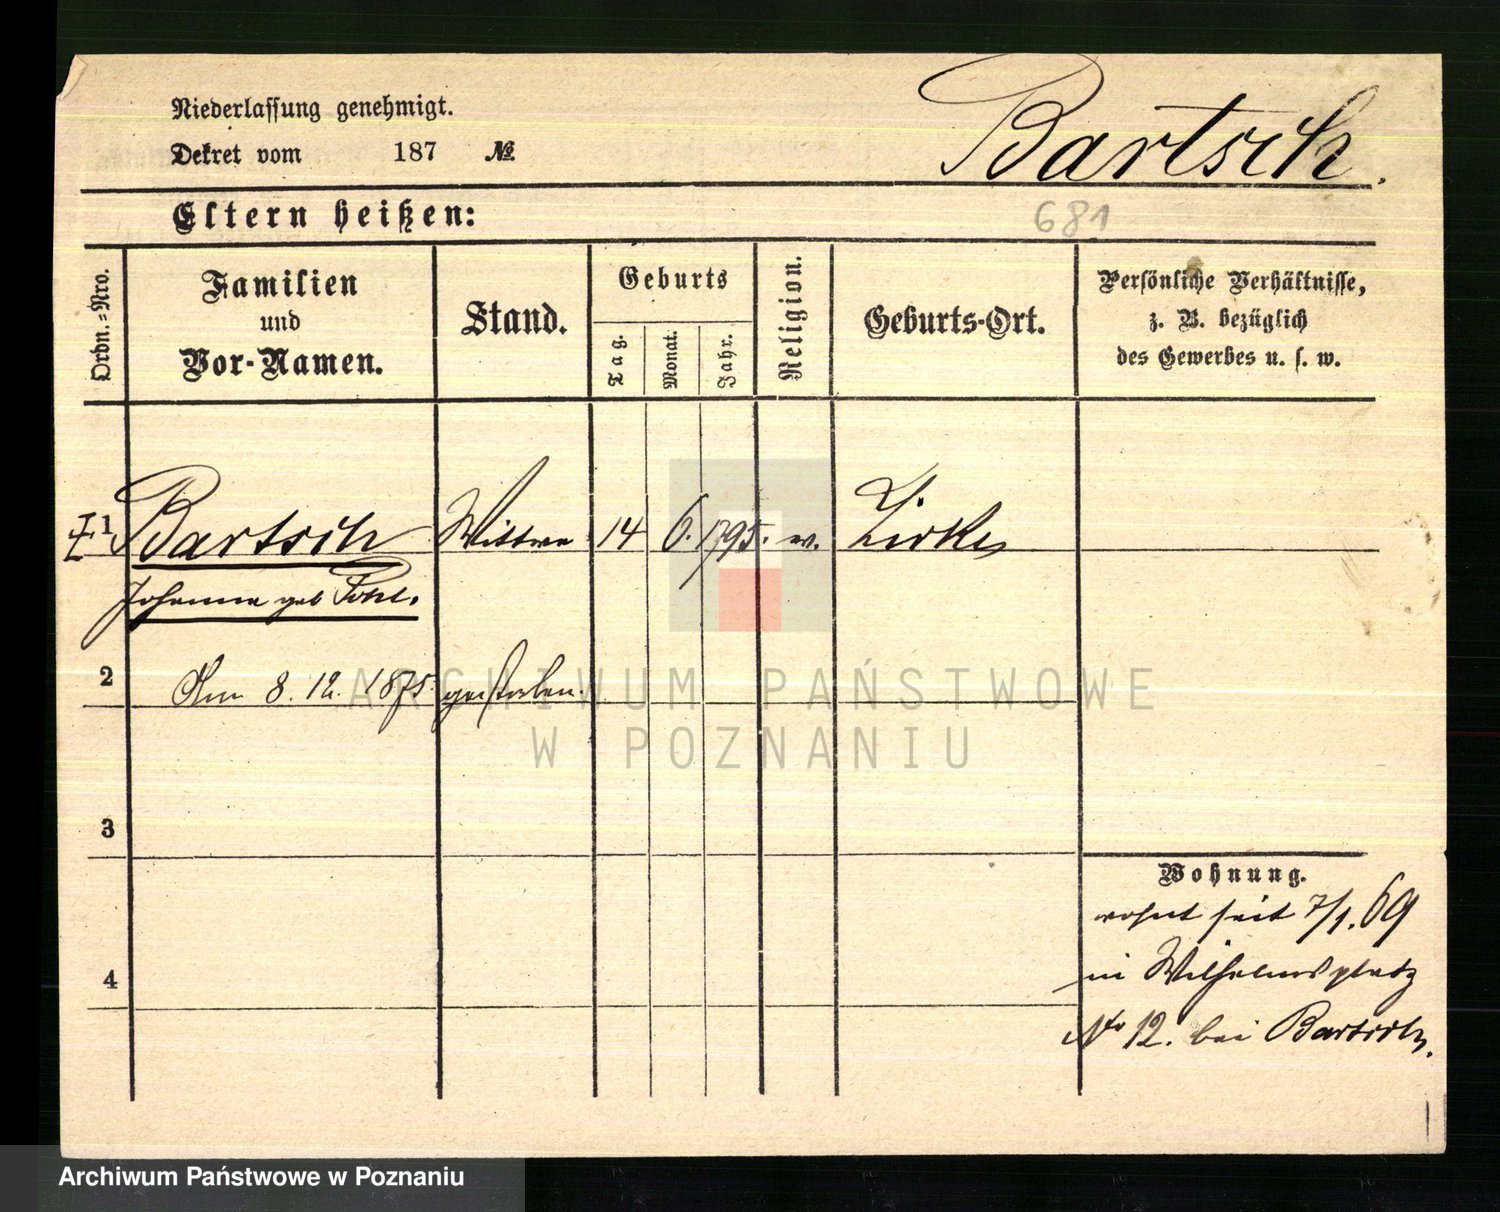 Niederlassung genehmigt.
Dekret vom 187 №
Bartsch.
681
Eltern heißen:
Ordn.-Nro.
Familien
und
Vor-Namen.
Stand.
Geburts
Tag.
Monat.
Jahr.
Religion.
Geburts-Ort.
Persönliche Verhältnisse,
z. B. bezüglich
des Gewerbes u. s. w.
1 Bartsch Wittwe 14 6. 1795. ev. Zirke
Johanna geb
2 Am 8. 12. 1875. gestorben.
3
4
Wohnung.
wohnt seit 7/1. 69
in Wilhelmsplatz
No 12. bei Bartsch.
ARCHIWUM PAŃSTWOWE
W POZNANIU
Archiwum Państwowe w Poznaniu